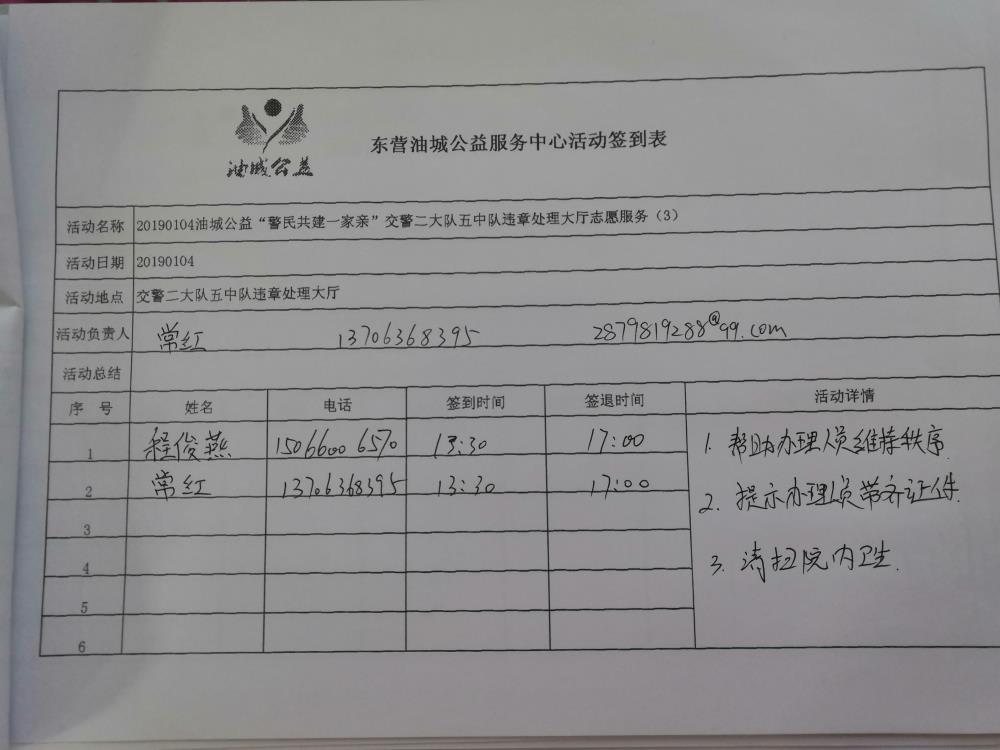 油城公益
东营油城公益服务中心活动签到表
活动名称 20190104油城公益“警民共建一家亲”交警二大队五中队违章处理大厅志愿服务（3）
活动日期 20190104
活动地点 交警二大队五中队违章处理大厅
活动负责人 常红 13706368395 2879819288@qq.com
活动总结
序 号 姓名 电话 签到时间 签退时间 活动详情
1 程俊燕 15066006570 13:30 17:00
2 常红 13706368395 13:30 17:00
3
4
5
6
1. 帮助办理人员维持秩序
2. 提示办理人员带齐证件.
3. 清扫院内卫生.